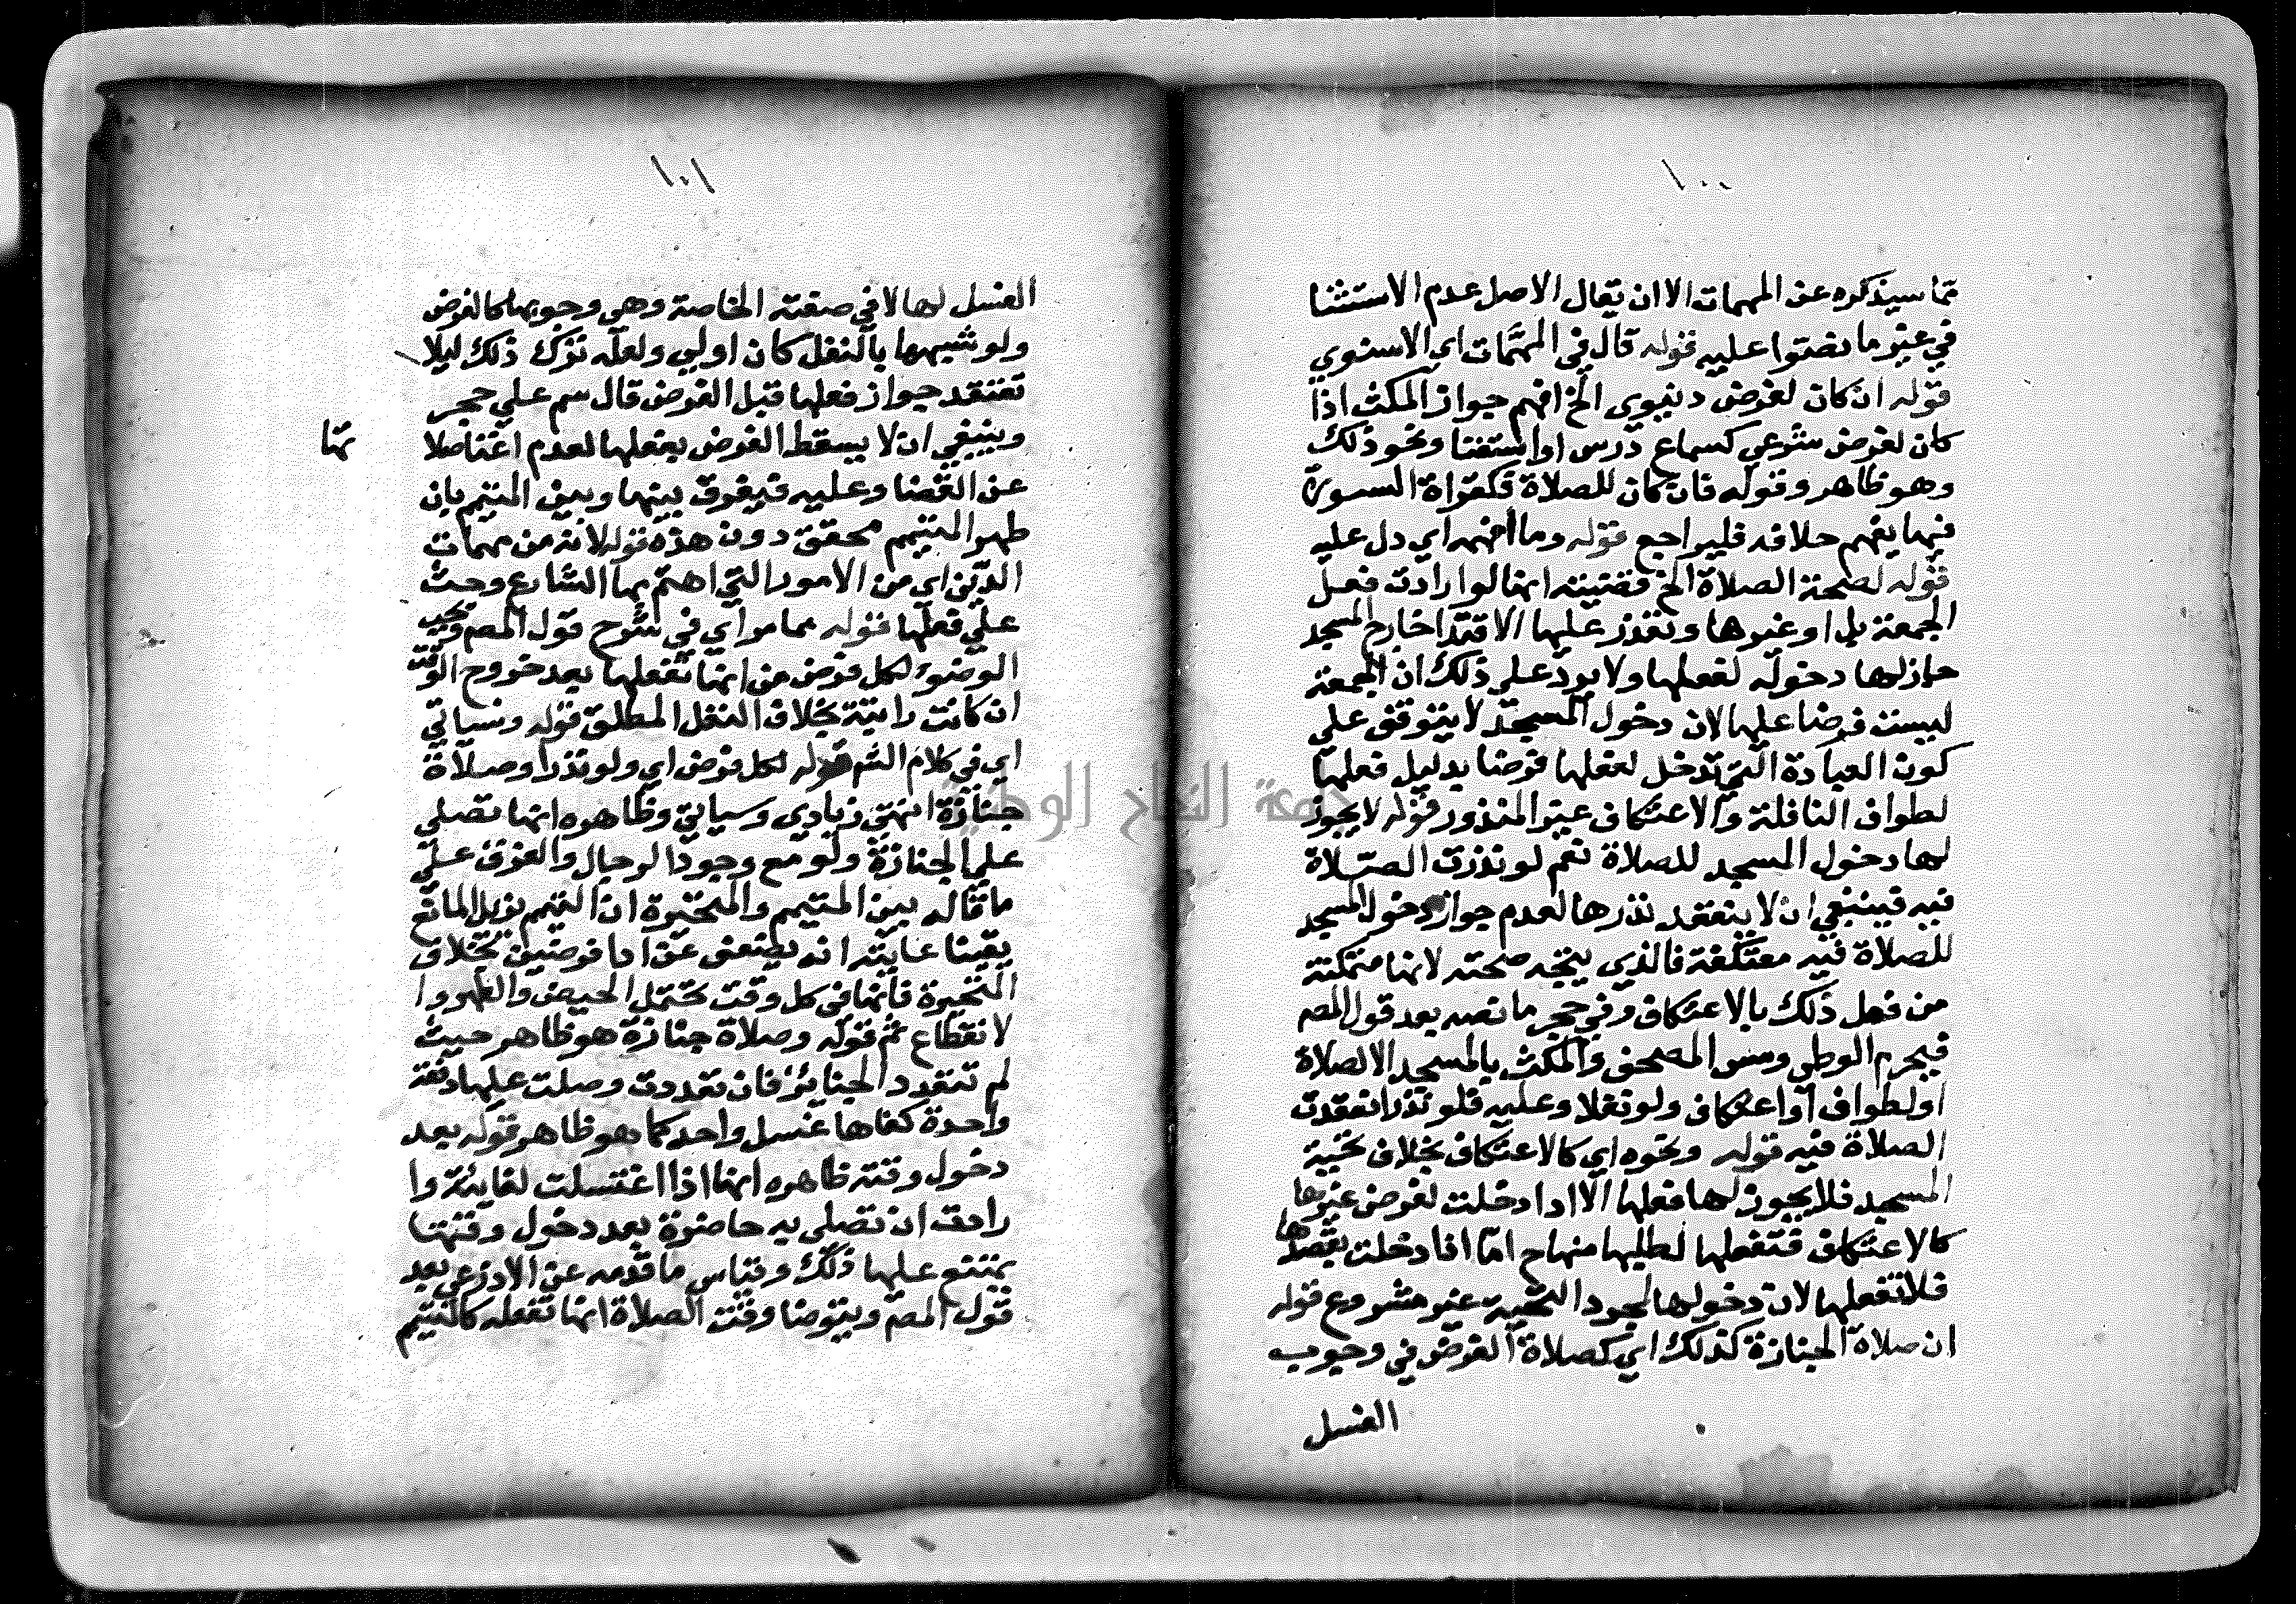 ١٠٠
مما سيذكره عن المهمات الا ان يقال الاصل عدم الاستثنا
في غير ما نصوا عليه قوله قال في المهمات اي الاسنوي
قوله ان كان لغرض دنيوي الخ افهم جواز المكث اذا
كان لغرض شرعي كسماع درس او استفتا ونحو ذلك
وهو ظاهر وقوله فان كان للصلاة فكقراة السورة
فيها يفهم خلافه فليراجع قوله وما افهمه اي دل عليه
قوله لصحة الصلاة الخ قضيته انها لو ارادت فعل
الجمعة بل او غيرها وتعذر عليها الاقتدا خارج المسجد
جاز لها دخوله لفعلها ولا يرد على ذلك ان الجمعة
ليست فرضا عليها لان دخول المسجد لا يتوقف على
كون العبادة التي تدخل لفعلها فرضا بدليل فعلها
لطواف النافلة والاعتكاف غير المنذور قوله لا يجوز
لها دخول المسجد للصلاة نعم لو نذرت الصلاة
فيه فينبغي ان لا ينعقد نذرها لعدم جواز دخول المسجد
للصلاة فيه معتكفة فالذي يتجه صحته لانها متمكنة
من فعل ذلك بالاعتكاف وفي حجر ما نصه بعد قول المص
فيحرم الوطي ومس المصحف والمكث بالمسجد الا لصلاة
او لطواف او اعتكاف ولو نفلا وعليه فلو نذر انعقدت
الصلاة فيه قوله ونحوه اي كالاعتكاف بخلاف تحية
المسجد فلا يجوز لها فعلها الا اذا دخلت لغرض غيرها
كالاعتكاف فتفعلها لطلبها منهاج اما اذا دخلت بقصدها
فلا تفعلها لان دخولها لمجرد التحية غير مشروع قوله
ان صلاة الجنازة كذلك اي كصلاة الفرض في وجوب
الغسل
١٠١
الغسل لها لا في صفته الخاصة وهي وجوبها كالفرض
ولو شبهها بالنفل كان اولي ولعله ترك ذلك ليلا
تعتقد جواز فعلها قبل الفرض قال سم علي حجر
وينبغي ان لا يسقط الفرض بفعلها لعدم اغناصلا
تها
عن القضا وعليه فيفرق بينها وبين المتيمم بان
طهر المتيمم محقق دون هذه قوله لانه من مهمات
الدين اي من الامور التي اهتم بها الشارع وحث
علي فعلها قوله مما مر اي في شرح قول المص فيجب
الوضوء لكل فرض من انها تفعلها بعد خروج الوقت
ان كانت راتبة بخلاف النفل المطلق قوله وسياتي
اي في كلام الشم قوله لكل فرض اي ولو نذرا وصلاة
جنازة انتهي زيادي وسياتي وظاهره انها تصلي
علي الجنازة ولو مع وجود الرجال والفرق علي
ما قاله بين المتيمم والمتحيرة ان التيمم يزيل المانع
يقينا غايته انه يضعف عن ادا فرضين بخلاف
المتحيرة فانها في كل وقت تحتمل الحيض والطهر وا
لانقطاع ثم قوله وصلاة جنازة هو ظاهر حيث
لم تتعدد الجنايز فان تعددت وصلت عليها دفعة
واحدة كفاها غسل واحد كما هو ظاهر قوله بعد
دخول وقته ظاهره انها اذا اغتسلت لفايتة وا
رادت ان تصلي به حاضرة بعد دخول وقتها
يمتنع عليها ذلك وقياس ما قدمه عن الاذرعي بعد
قول المص ويتوضا وقت الصلاة انها تفعله كالمتيمم
جامعة النجاح الوطنية